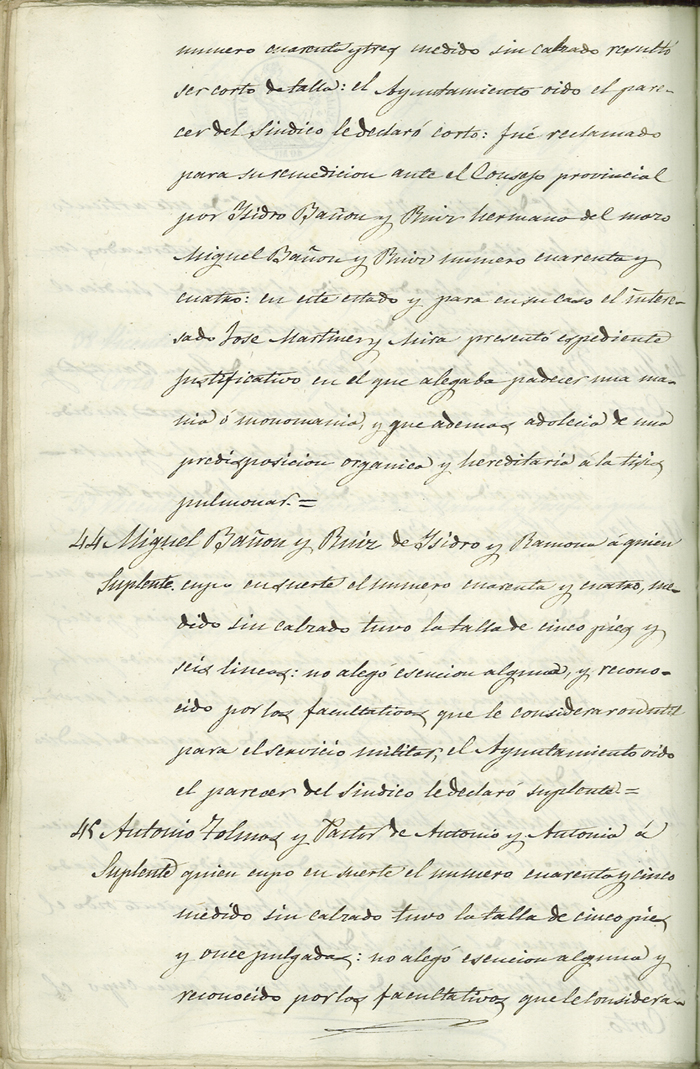 numero cuarenta y tres medido sin calzado resultó
ser corto de talla: el Ayuntamiento oido el pare-
cer del Sindico le declaró corto: fué reclamado
para su remedicion ante el Consejo provincial
por Ysidro Bañon y Ruiz hermano del mozo
Miguel Bañon y Ruiz numero cuarenta y
cuatro: en este estado y para en su caso el intere-
sado Jose Martinez y Mira presentó espediente
justificativo en el que alegaba padecer una ma-
nia ó monomania, y que ademas adolecia de una
predisposicion organica y hereditaria á la tisis
pulmonar.=
44 Miguel Bañon y Ruiz de Ysidro y Ramona á quien
Suplente. cupo en suerte el numero cuarenta y cuatro, me-
dido sin calzado tuvo la talla de cinco pies y
seis lineas: no alegó esencion alguna, y recono-
cido por los facultativos que le consideraron util
para el servicio militar, el Ayuntamiento oido
el parecer del Sindico le declaró suplente.=
45 Antonio Tolmos y Pastor de Antonio y Antonia á
Suplente quien cupo en suerte el numero cuarenta y cinco
medido sin calzado tuvo la talla de cinco pies
y once pulgadas: no alegó esencion alguna y
reconocido por los facultativos que le considera-